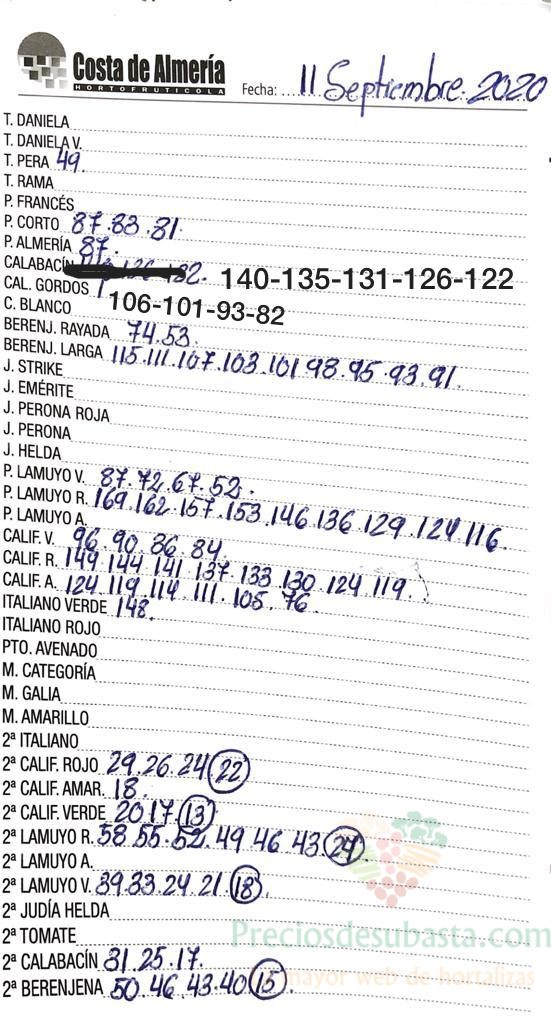 Costa de Almería
HORTOFRUTICOLA
Fecha: 11 Septiembre. 2020
T. DANIELA
T. DANIELA V.
T. PERA 49.
T. RAMA
P. FRANCÉS
P. CORTO 87.83.81.
P. ALMERÍA 87.
CALABACÍN 140-135-131-126-122
CAL. GORDOS 106-101-93-82
C. BLANCO
BERENJ. RAYADA 74.53.
BERENJ. LARGA 115.111.107.103.101 98.95.93.91.
J. STRIKE
J. EMÉRITE
J. PERONA ROJA
J. PERONA
J. HELDA
P. LAMUYO V. 87.72.67.52.
P. LAMUYO R. 169.162.157.153.146.136.129.124.116.
P. LAMUYO A.
CALIF. V. 96.90.86.84.
CALIF. R. 149.144.141.137.133.130.124.119.
CALIF. A. 124.119.114.111.105.76.
ITALIANO VERDE 148.
ITALIANO ROJO
PTO. AVENADO
M. CATEGORÍA
M. GALIA
M. AMARILLO
2ª ITALIANO
2ª CALIF. ROJO 29.26.24 22
2ª CALIF. AMAR. 18.
2ª CALIF. VERDE 20.17.13
2ª LAMUYO R. 58.55.52.49.46.43 24.
2ª LAMUYO A.
2ª LAMUYO V. 39.33.24.21 18.
2ª JUDÍA HELDA
2ª TOMATE
Preciosdesubasta.com
2ª CALABACÍN 31.25.17.
mayor web de hortalizas
2ª BERENJENA 50.46.43.40 15.